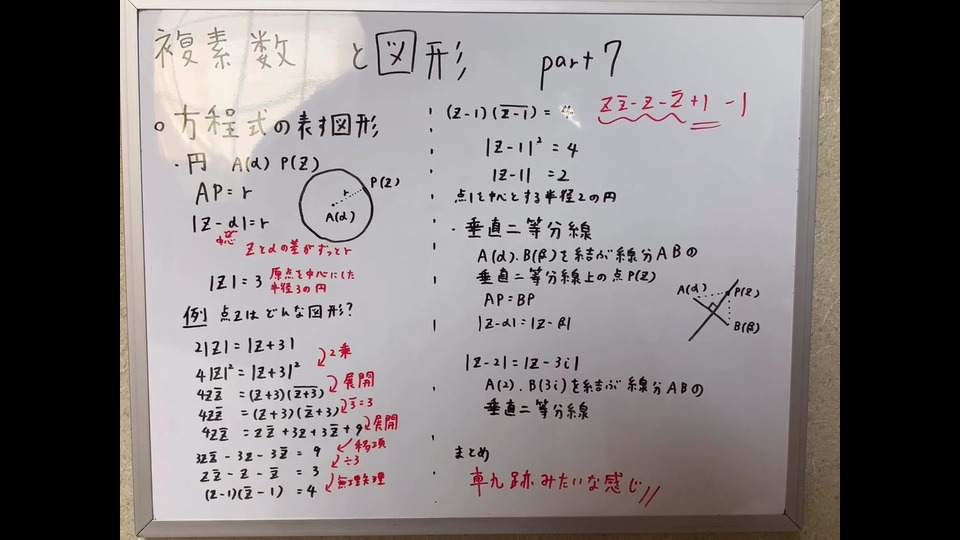 複素数 と図形 part 7
○ 方程式の表す図形
・円 A(α) P(z)
AP = r
|z - α| = r
中心
zとαの差がずっとr
r
P(z)
A(α)
|z| = 3 原点を中心にした
半径3の円
例 点zはどんな図形?
2|z| = |z+3|
2乗
4|z|² = |z+3|²
展開
4zz̄ = (z+3)(z+3)‾
3̄ = 3
4zz̄ = (z+3)(z̄+3)
展開
4zz̄ = zz̄ + 3z + 3z̄ + 9
移項
3zz̄ - 3z - 3z̄ = 9
÷3
zz̄ - z - z̄ = 3
無理矢理
(z-1)(z̄-1) = 4
(z-1)(z-1)‾ = 4
zz̄ - z - z̄ + 1 - 1
|z-1|² = 4
|z-1| = 2
点1を中心とする半径2の円
・垂直二等分線
A(α).B(β)を結ぶ線分ABの
垂直二等分線上の点P(z)
AP = BP
|z-α| = |z-β|
A(α)
P(z)
B(β)
|z-2| = |z-3i|
A(2).B(3i)を結ぶ線分ABの
垂直二等分線
まとめ
軌跡みたいな感じ//